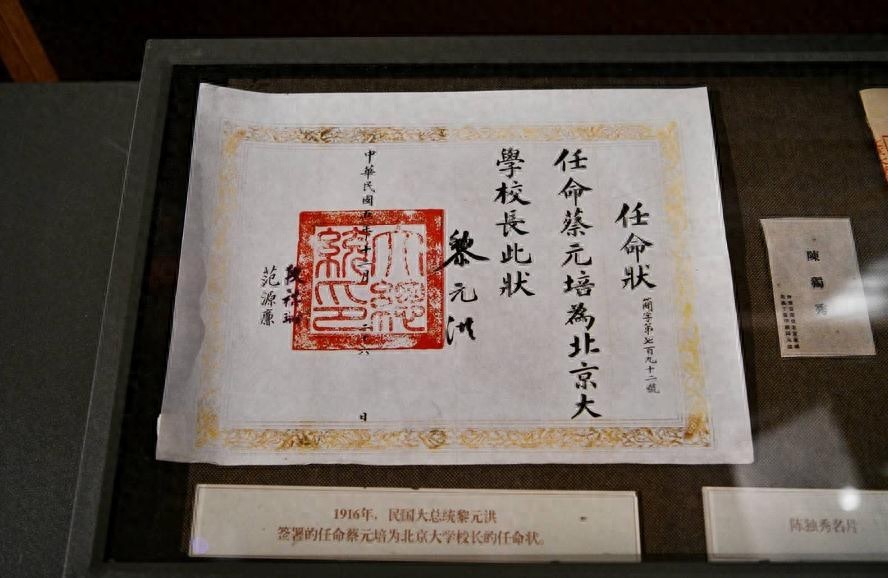 任命狀
簡字第七百九十二號
任命蔡元培為北京大
學校長此狀
黎元洪
大總統印
中華民國五年十二月二十六日
段祺瑞
范源廉
陳獨秀
1916年，民国大总统黎元洪
签署的任命蔡元培为北京大学校长的任命状。
陈独秀名片